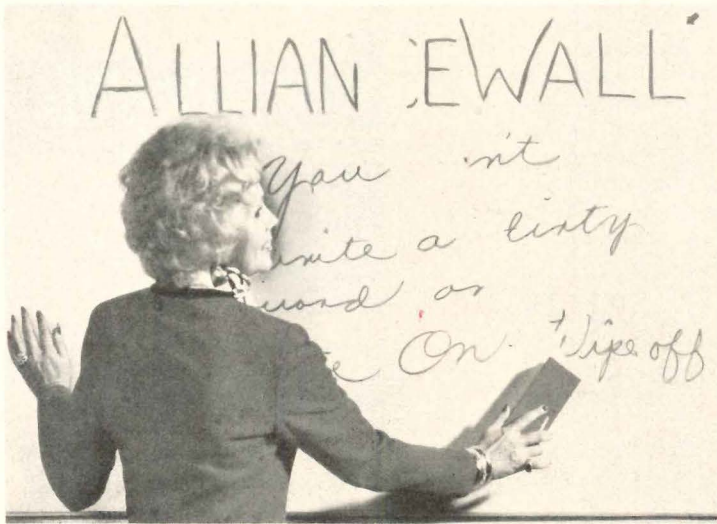 ALLIAN EWALL
You n't
write a dirty
word on
te On. Wipe off